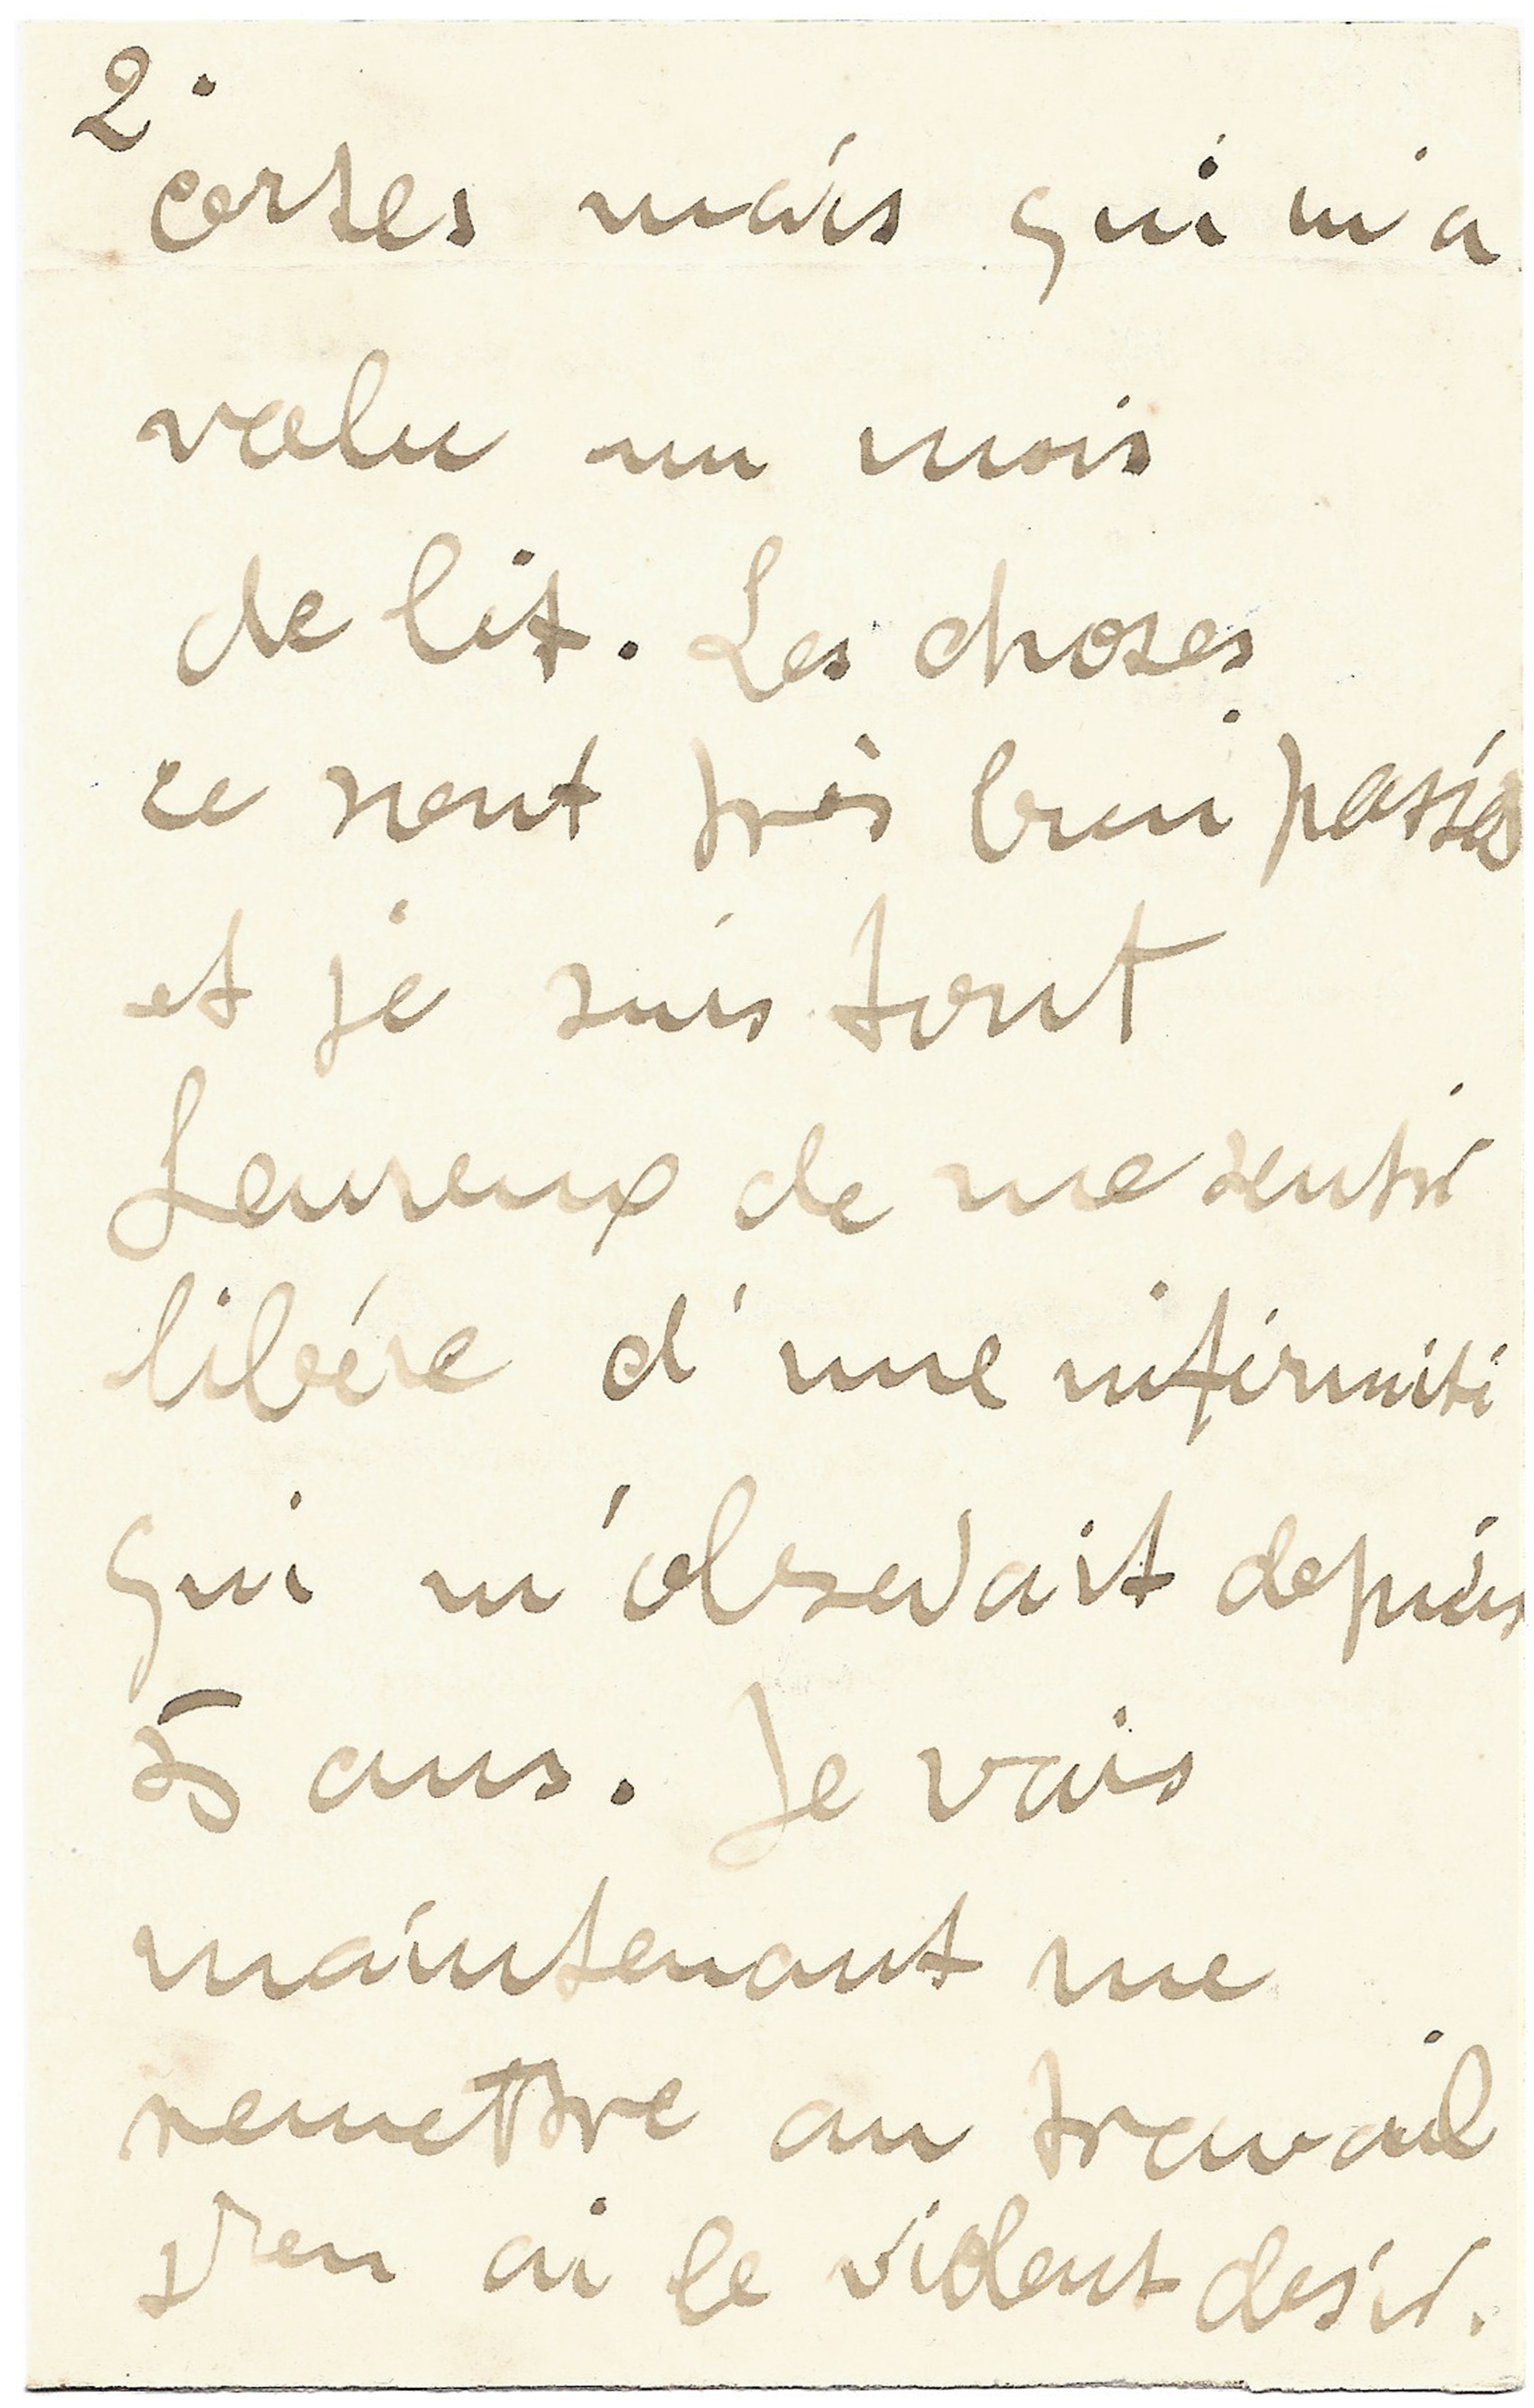 2.
certes mais qui m'a
valu un mois
de lit. Les choses
se sont très bien passées
et je suis tout
heureux de me sentir
libéré d'une infirmité
qui m'obsedait depuis
5 ans. Je vais
maintenant me
remettre au travail
J'en ai le violent desir.